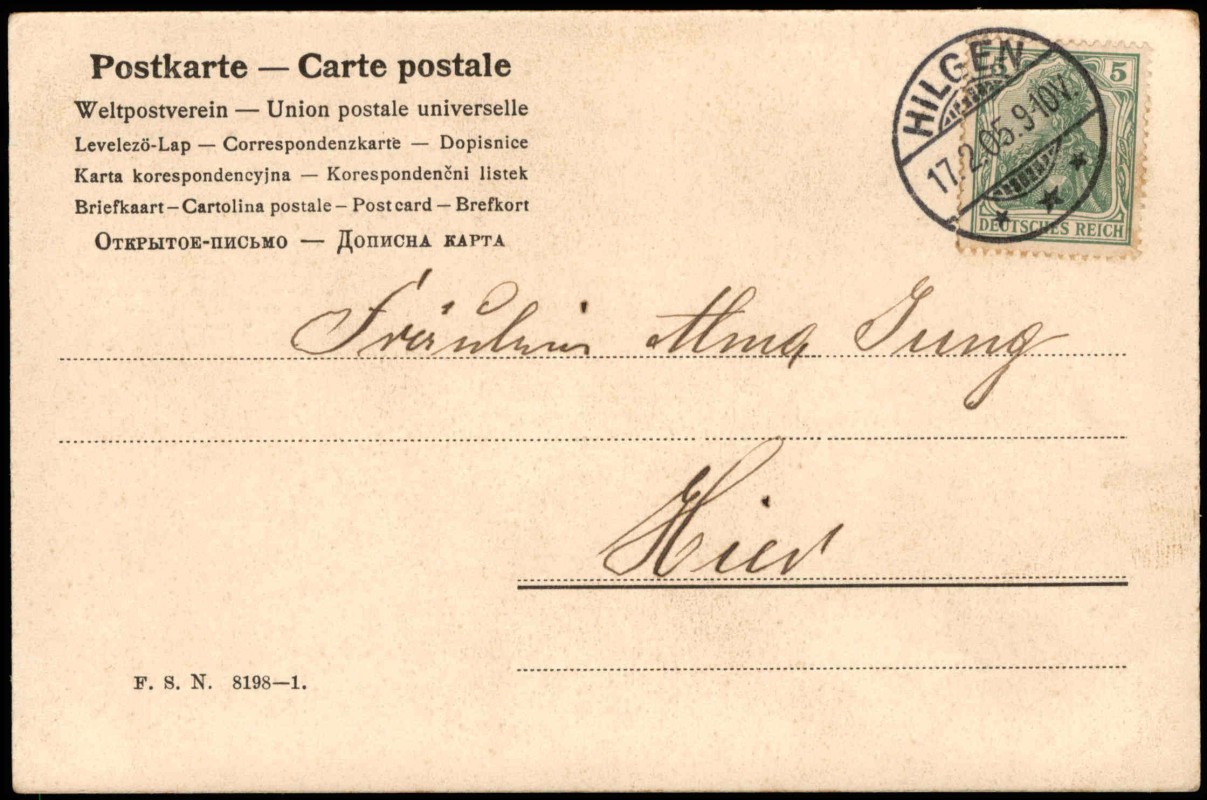 Postkarte — Carte postale
Weltpostverein — Union postale universelle
Levelezö-Lap — Correspondenzkarte — Dopisnice
Karta korespondencyjna — Korespondenčni listek
Briefkaart – Cartolina postale – Postcard – Brefkort
Открытое-письмо — Дописна карта
HILGEN
17.2.05.9-10V.
5
5
DEUTSCHES REICH
Fräulein Alma Jung
Hier
F. S. N. 8198—1.